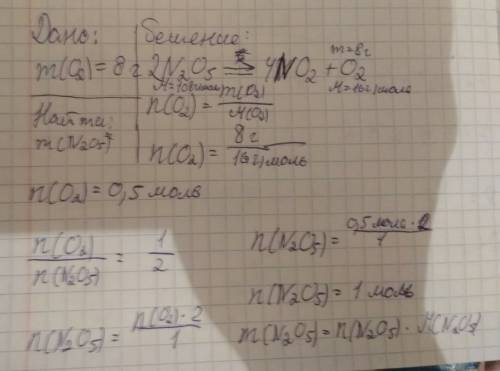 Дано:
m(O₂) = 8 г
Найти:
m(N₂O₅)
Решение:
m=8г
2N₂O₅ ⇌ 4NO₂ + O₂
M=108г/моль M=16г/моль
n(O₂) = m(O₂)/M(O₂)
n(O₂) = 8 г/16г/моль
n(O₂) = 0,5 моль
n(O₂)/n(N₂O₅) = 1/2
n(N₂O₅) = n(O₂)·2/1
n(N₂O₅) = 0,5 моль·2/1
n(N₂O₅) = 1 моль
m(N₂O₅) = n(N₂O₅) · M(N₂O₅)